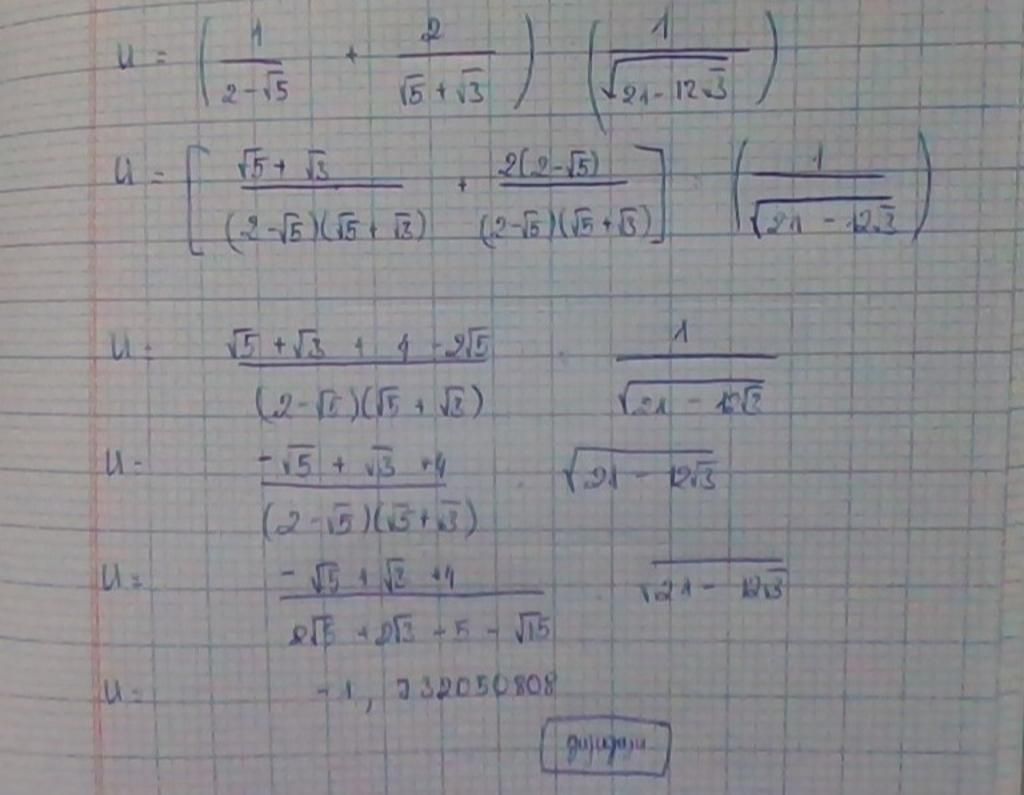 u = ( 1/(2-√5) + 2/(√5+√3) ) ( 1/√(21-12√3) )
u = [ (√5+√3)/((2-√5)(√5+√3)) + 2(2-√5)/((2-√5)(√5+√3)) ] · ( 1/√(21-12√3) )
u = (√5+√3+4-2√5)/((2-√5)(√5+√3)) · 1/√(21-12√3)
u = (-√5+√3+4)/((2-√5)(√5+√3)) · √(21-12√3)
u = (-√5+√3+4)/(2√5+2√3-5-√15) √21-12√3
u = -1,732050808